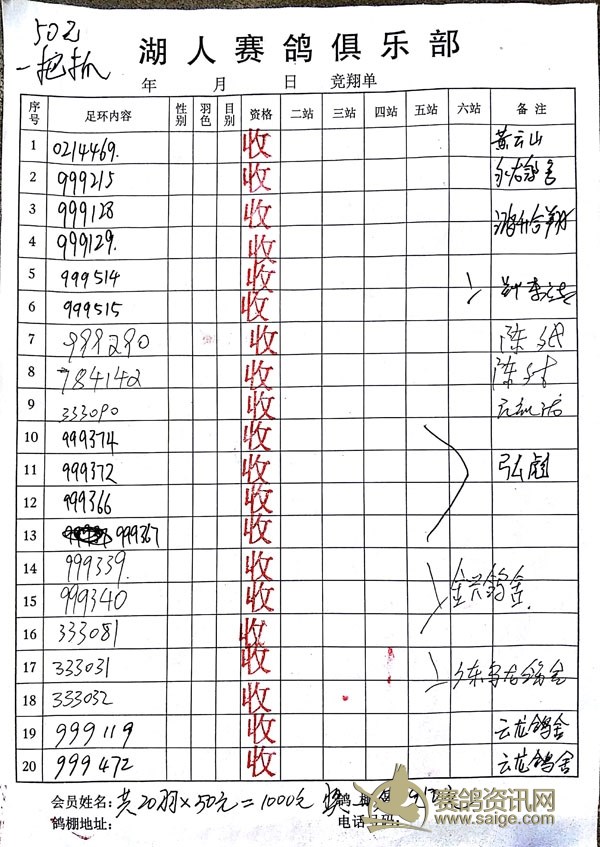 50元
一把抓
湖人赛鸽俱乐部
年 月 日 竞翔单
序号 足环内容 性别 羽色 目别 资格 二站 三站 四站 五站 六站 备注
1 0214469. 收 黄云山
2 999215 收
3 999128 收
4 999129. 收
5 999514 收
6 999515 收
7 999290 收
8 784142 收
9 333090 收
10 999374 收
11 999372 收 弘彪
12 999366 收
13 999367 收
14 999339. 收
15 999340 收 金兴鸽舍
16 333081 收
17 333031 收
18 333032 收
19 999119 收 云龙鸽舍
20 999472 收 云龙鸽舍
会员姓名: 共20羽×50元=1000元
鸽棚地址: 电话号码:
赛鸽资讯网
www.saige.com